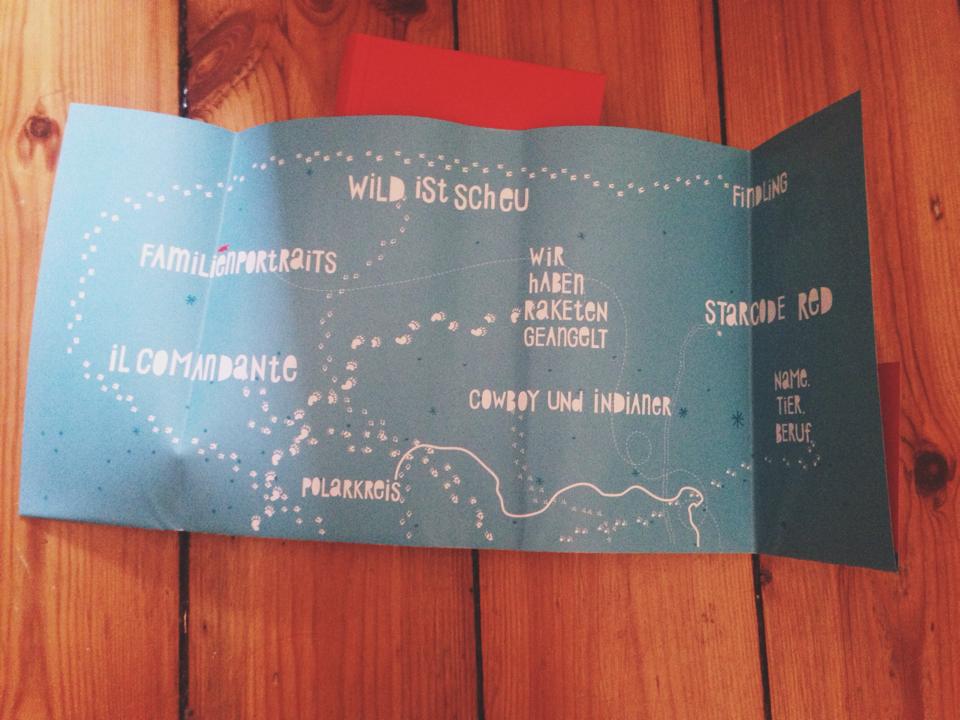 WiLD iST SCHEU
FiNDLiNG
FAMiLiENPORTRAiTS
WiR
HABEN
RAKETEN
GEANGELT
STARCODE RED
iL COMANDANTE
NAME.
TiER.
BERUF.
COWBOY UND iNDiANER
POLARKREiS